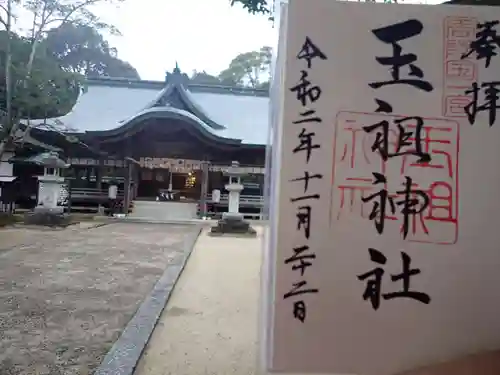 奉拝
玉祖神社
令和二年十一月二十二日